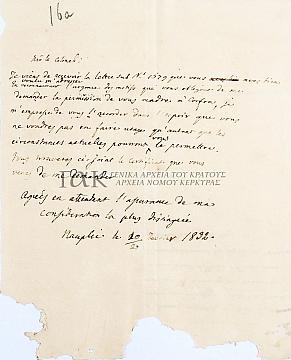 16a
Mr le Colonel:
Je viens de recevoir la lettre sub N° 1579 que vous avez bien
voulu m'adresser
En reconnaissant l'urgence des motifs que vous obligent de me
demander la permission de vous rendre à Corfou, je
m'empresse de vous l'accorder dans l'espoir que vous
ne voudrez pas en faire usage qu'autant que les
circonstances actuelles pourront vous le permettre.
Vous trouverez ci-joint le certificat que vous
venez de me demander.
ΓΕΝΙΚΑ ΑΡΧΕΙΑ ΤΟΥ ΚΡΑΤΟΥΣ
ΑΡΧΕΙΑ ΝΟΜΟΥ ΚΕΡΚΥΡΑΣ
Agréez en attendant l'assurance de ma
considération la plus distinguée
Nauplie le 1832